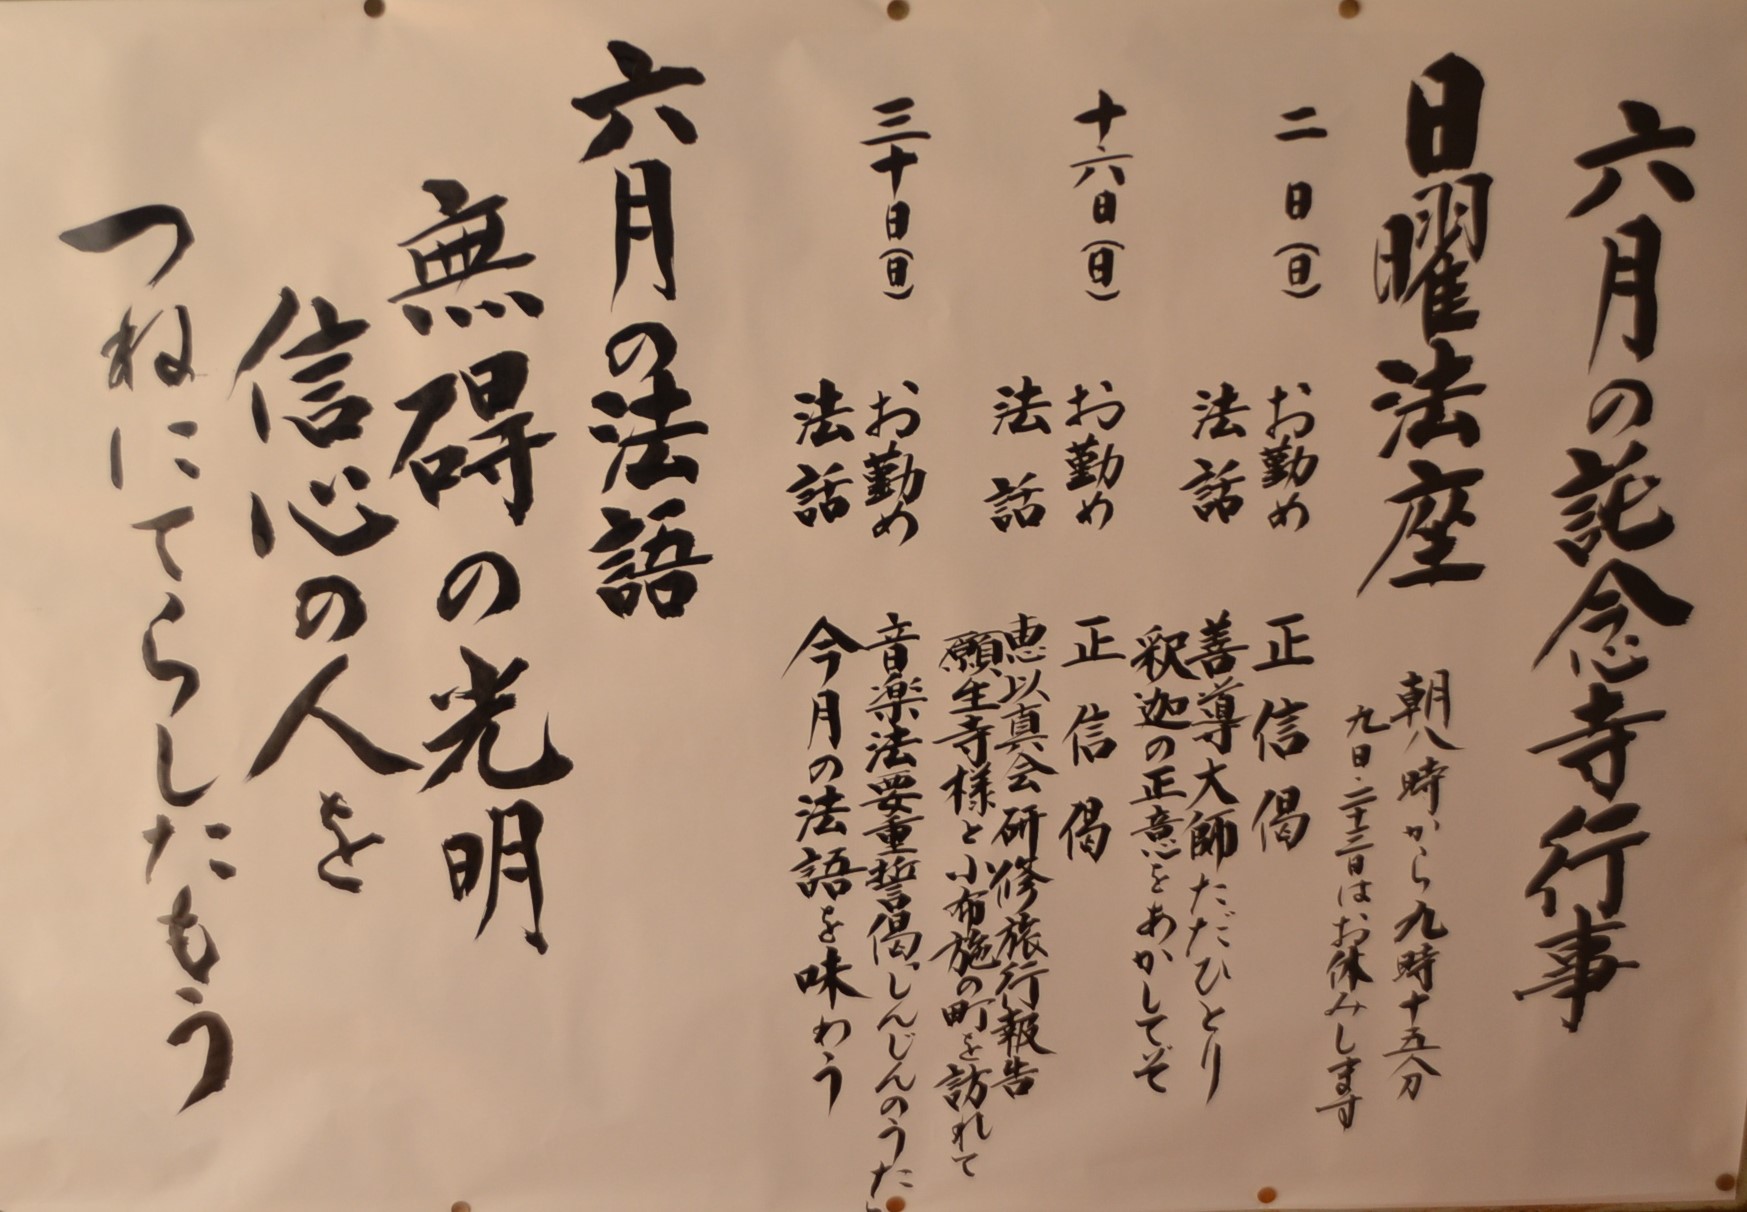 六月の託念寺行事
日曜法座
朝八時から九時十五分
九日・二十三日はお休みします
二日(日)
お勤め 正信偈
法話 善導大師ただひとり
釈迦の正意をあかしてぞ
十六日(日)
お勤め 正信偈
法話 恵以真会研修旅行報告
願生寺様と小布施の町を訪れて
三十日(日)
お勤め 音楽法要重誓偈、しんじんのうた
法話 今月の法語を味わう
六月の法語
無碍の光明
信心の人を
つねにてらしたもう